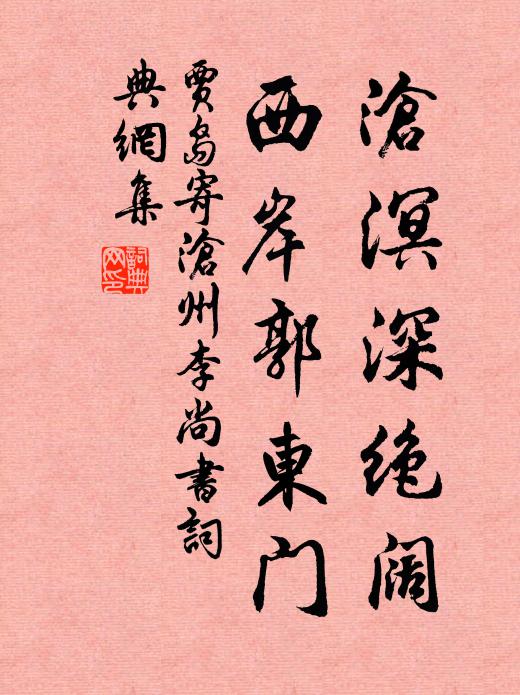 滄溟深絶闊
西岸郭東门
賈島寄滄州李尚書詞
典網集
詞典
网印